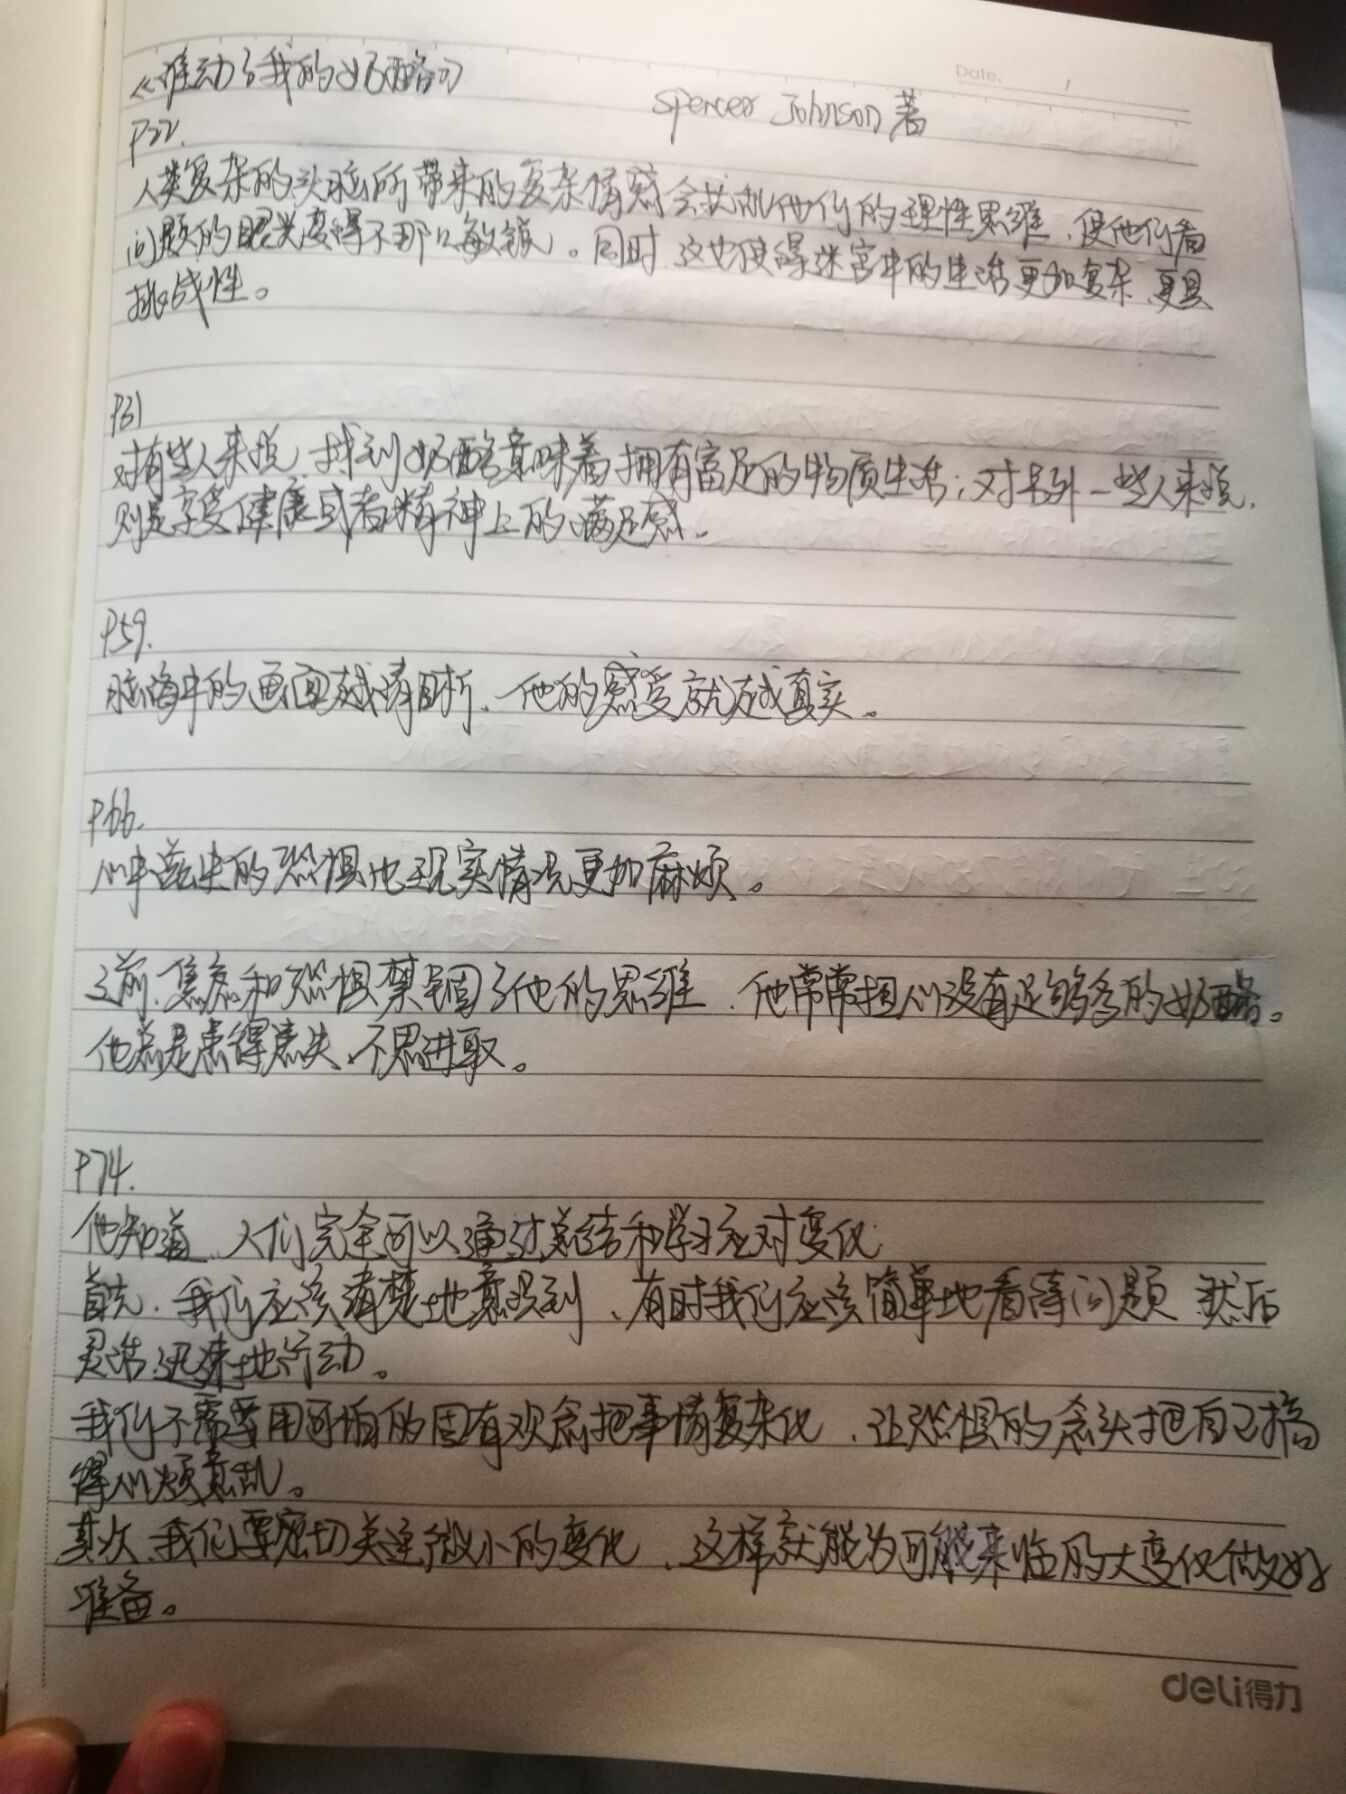 《谁动了我的奶酪》
Date.
Spencer Johnson 著
P22.
人类复杂的头脑所带来的复杂情感会扰乱他们的理性思维，使他们看
问题的眼光变得不那么敏锐。同时，这也使得迷宫中的生活更加复杂、更具
挑战性。
P31
对有些人来说，找到奶酪意味着拥有富足的物质生活；对另外一些人来说，
则是享受健康或者精神上的满足感。
P59.
脑海中的画面越清晰、他的感受就越真实。
P66.
心中滋生的恐惧比现实情况更加麻烦。
之前，焦虑和恐惧禁锢了他的思维，他常常担心没有足够多的奶酪。
他总是患得患失、不思进取。
P74.
他知道，人们完全可以通过总结和学习应对变化.
首先，我们应该清楚地意识到，有时我们应该简单地看待问题 然后
灵活.迅速地行动。
我们不需要用可怕的固有观念把事情复杂化，让恐惧的念头把自己搞
得心烦意乱。
其次、我们要密切关注微小的变化，这样就能为可能来临的大变化做好
准备。
deli得力